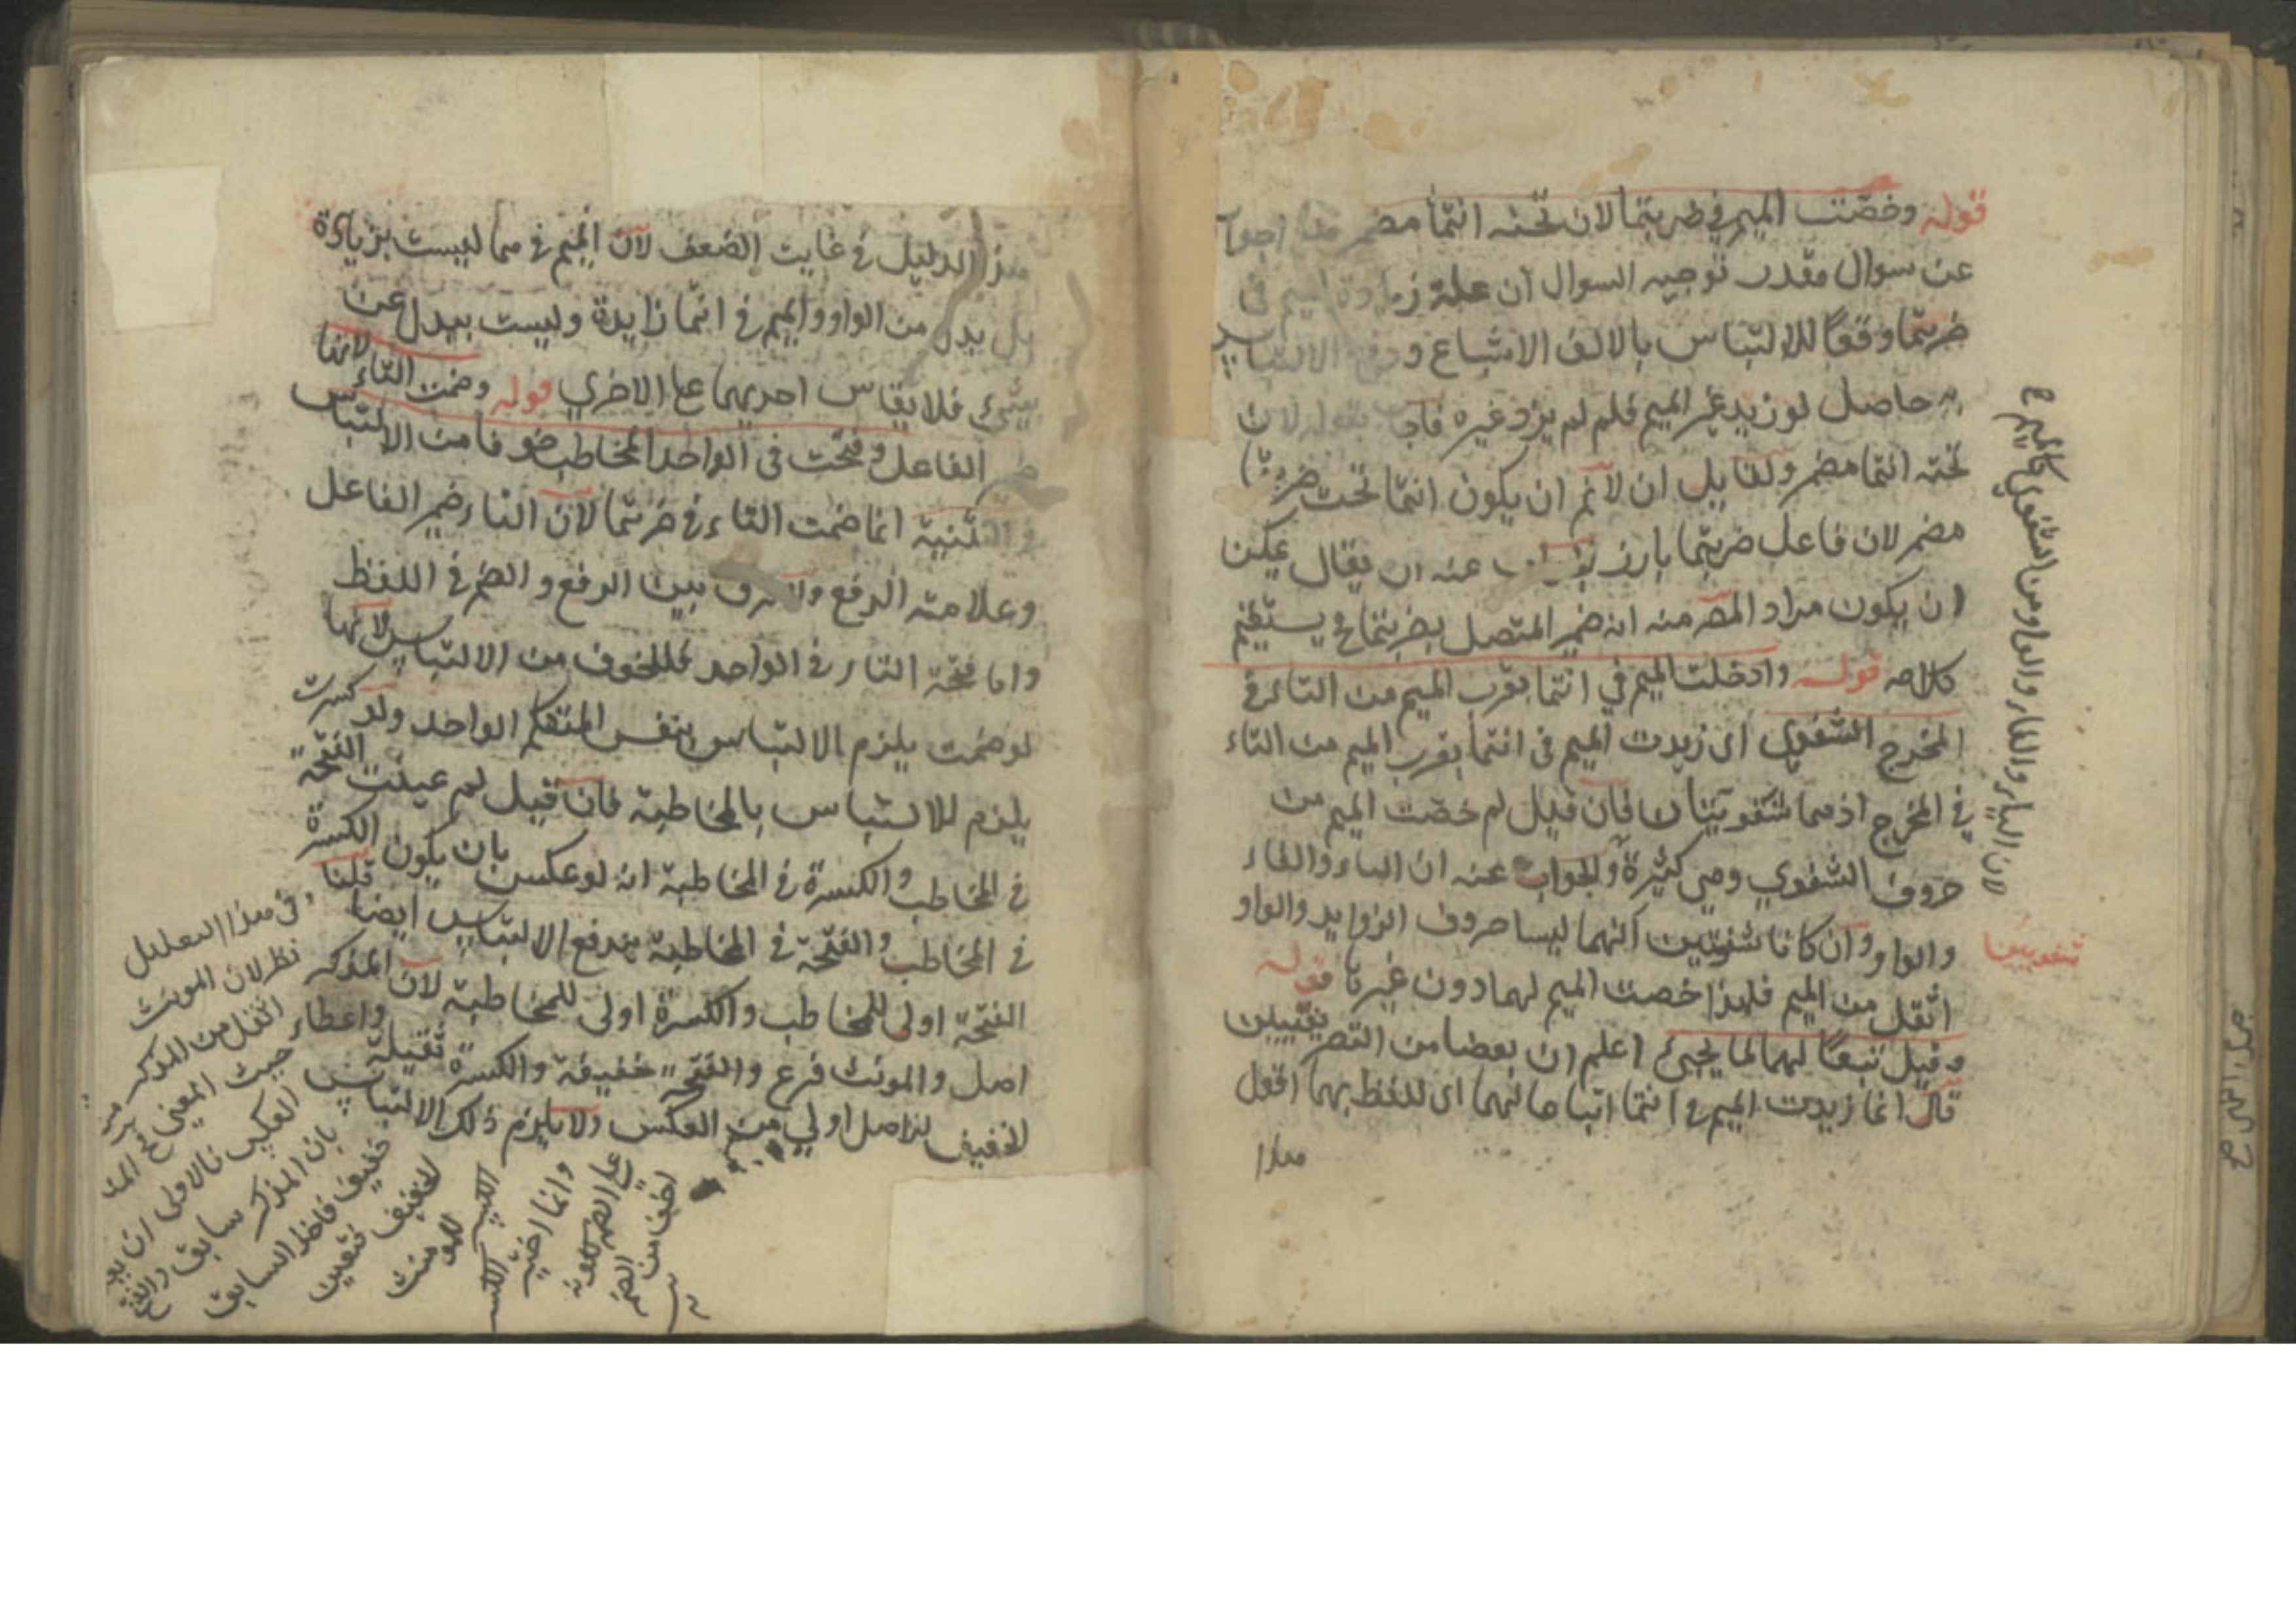 قوله وخصّت الميم في ضربتما لان تحته انتما مضمر هذا جواب
عن سوال مقدر توجيه السوال ان علة زيادة الميم في
ضربتما وقعًا للالتباس بالالف الاشباع ودفع الالتباس
به حاصل لو زيد غير الميم فلم لم يزد غيره فاجاب بقوله لان
تحته انتما مضمر ولقايل ان لانم ان يكون انتما تحت ضربتما
مضمر لان فاعل ضربتما بارز عنه ان يقال يمكن
ان يكون مراد المصر منه انه ضمير المتصل بضربتما ح يستقيم
كلامه قوله وادخلت الميم في انتما بقرب الميم من التاء في
المخرج الشفوي اى زيدت الميم فى انتما بقرب الميم من التاء
في المخرج اذ هما شفويتيان فان قيل لم خصّت الميم من
حروف الشفوي وهي كثيرة والجواب عنه ان الباء والفاء
والواو وان كانا شفويتين انهما ليسا حروف الزوايد والواو
اثقل من الميم فلهذا خصت الميم لهما دون غيرها قوله
وقيل تبعًا لهما لما يجيئ اعلم ان بعضا من التصريفيين
قال انما زيدت الميم في انتما اتباعا لهما اى للفظ بهما اقول
هذا
لان الباء والفاء والواو من الشفوي كالميم ع
شفويين
هذا الدليل في غايت الضعف لان الميم في هما ليست بزيادة
بل بدل من الواو والميم في انتما زايدة وليست ببدل عن
شيئ فلا يقاس احديهما على الاخري قوله وضمت التاء لانها
ضمير الفاعل وفتحت فى الواحد المخاطب خوفا من الالتباس
والتثنية انما ضمت التاء في ضربتما لان التاء ضمير الفاعل
وعلامته الرفع ولا فرق بين الرفع والضم في اللفظ
واما فتحة التاء في الواحد فللخوف من الالتباس لانها
لو ضمت يلزم الالتباس بنفس المتكلم الواحد ولو كسرت
يلزم للالتباس بالمخاطبة فان قيل لم عينت الفتحة
في المخاطب والكسرة في المخاطبة انه لو عكس بان يكون الكسرة
في المخاطب والفتحة في المخاطبة يندفع الالتباس ايضا قلنا
الفتحة اولى للمخاطب والكسرة اولى للمخاطبة لان المذكر
اصل والمونث فرع والفتحة خفيفة والكسرة ثقيلة واعطاء
الخفيف للاصل اولي من العكس ولا يلزم ذلك الالتباس
وفى هذا التعليل
نظر لان المونث
اثقل من المذكر من
حيث المعنى
العكس فالاولى ان يقـ
بان المذكر سابق والفتح
خفيف فاخذ السابق
الخفيف فتعين
الكسر
للمونث
وانما اختير الكسر
على الضم لكونه
اخف من الضم